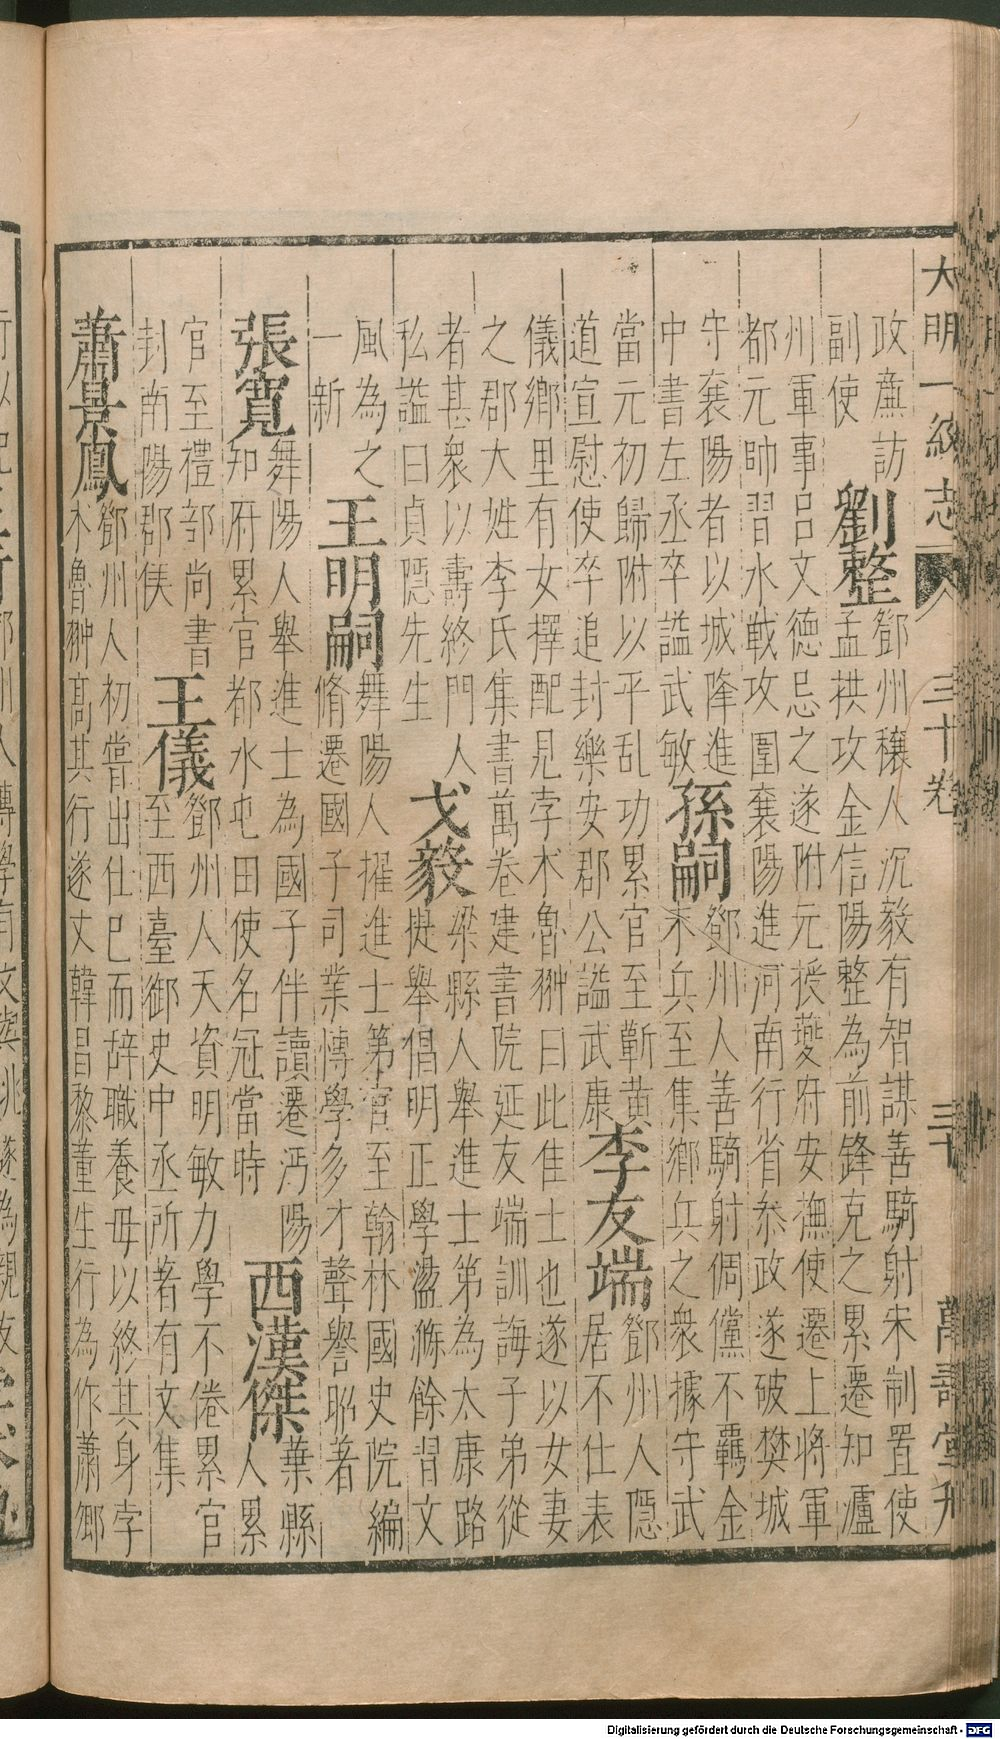 大明一統志 三十卷 三十 萬壽堂刊
政薦訪
副使
劉整
鄧州穰人沉毅有智謀善騎射宋制置使
孟拱攻金信陽整為前鋒克之累遷知瀘
州軍事呂文德忌之遂附元授夔府安撫使遷上將軍
都元帥習水戰攻圍襄陽進河南行省參政遂破樊城
守襄陽者以城降進
中書左丞卒諡武敏
孫嗣
鄧州人善騎射倜儻不羈金
末兵至集鄉兵之衆據守武
當元初歸附以平乱功累官至蘄黃
道宣慰使卒追封樂安郡公諡武康
李友端
鄧州人隱
居不仕表
儀鄉里有女擇配見孛朮魯翀曰此佳士也遂以女妻
之郡大姓李氏集書萬卷建書院延友端訓誨子弟從
者甚衆以壽終門人
私諡曰貞隱先生
戈毅
梁縣人舉進士第為太康路
提舉倡明正學盪滌餘習文
風為之
一新
王明嗣
舞陽人擢進士第官至翰林國史院編
脩遷國子司業博學多才聲譽昭著
張寬
舞陽人舉進士為國子伴讀遷沔陽
知府累官都水屯田使名冠當時
西漢傑
葉縣
人累
官至禮部尚書
封南陽郡侯
王儀
鄧州人天資明敏力學不倦累官
至西臺御史中丞所著有文集
蕭景鳳
鄧州人初嘗出仕已而辞職養母以終其身孛
朮魯翀高其行遂丈韓昌黎董生行為作蕭鄉
Digitalisierung gefördert durch die Deutsche Forschungsgemeinschaft - DFG